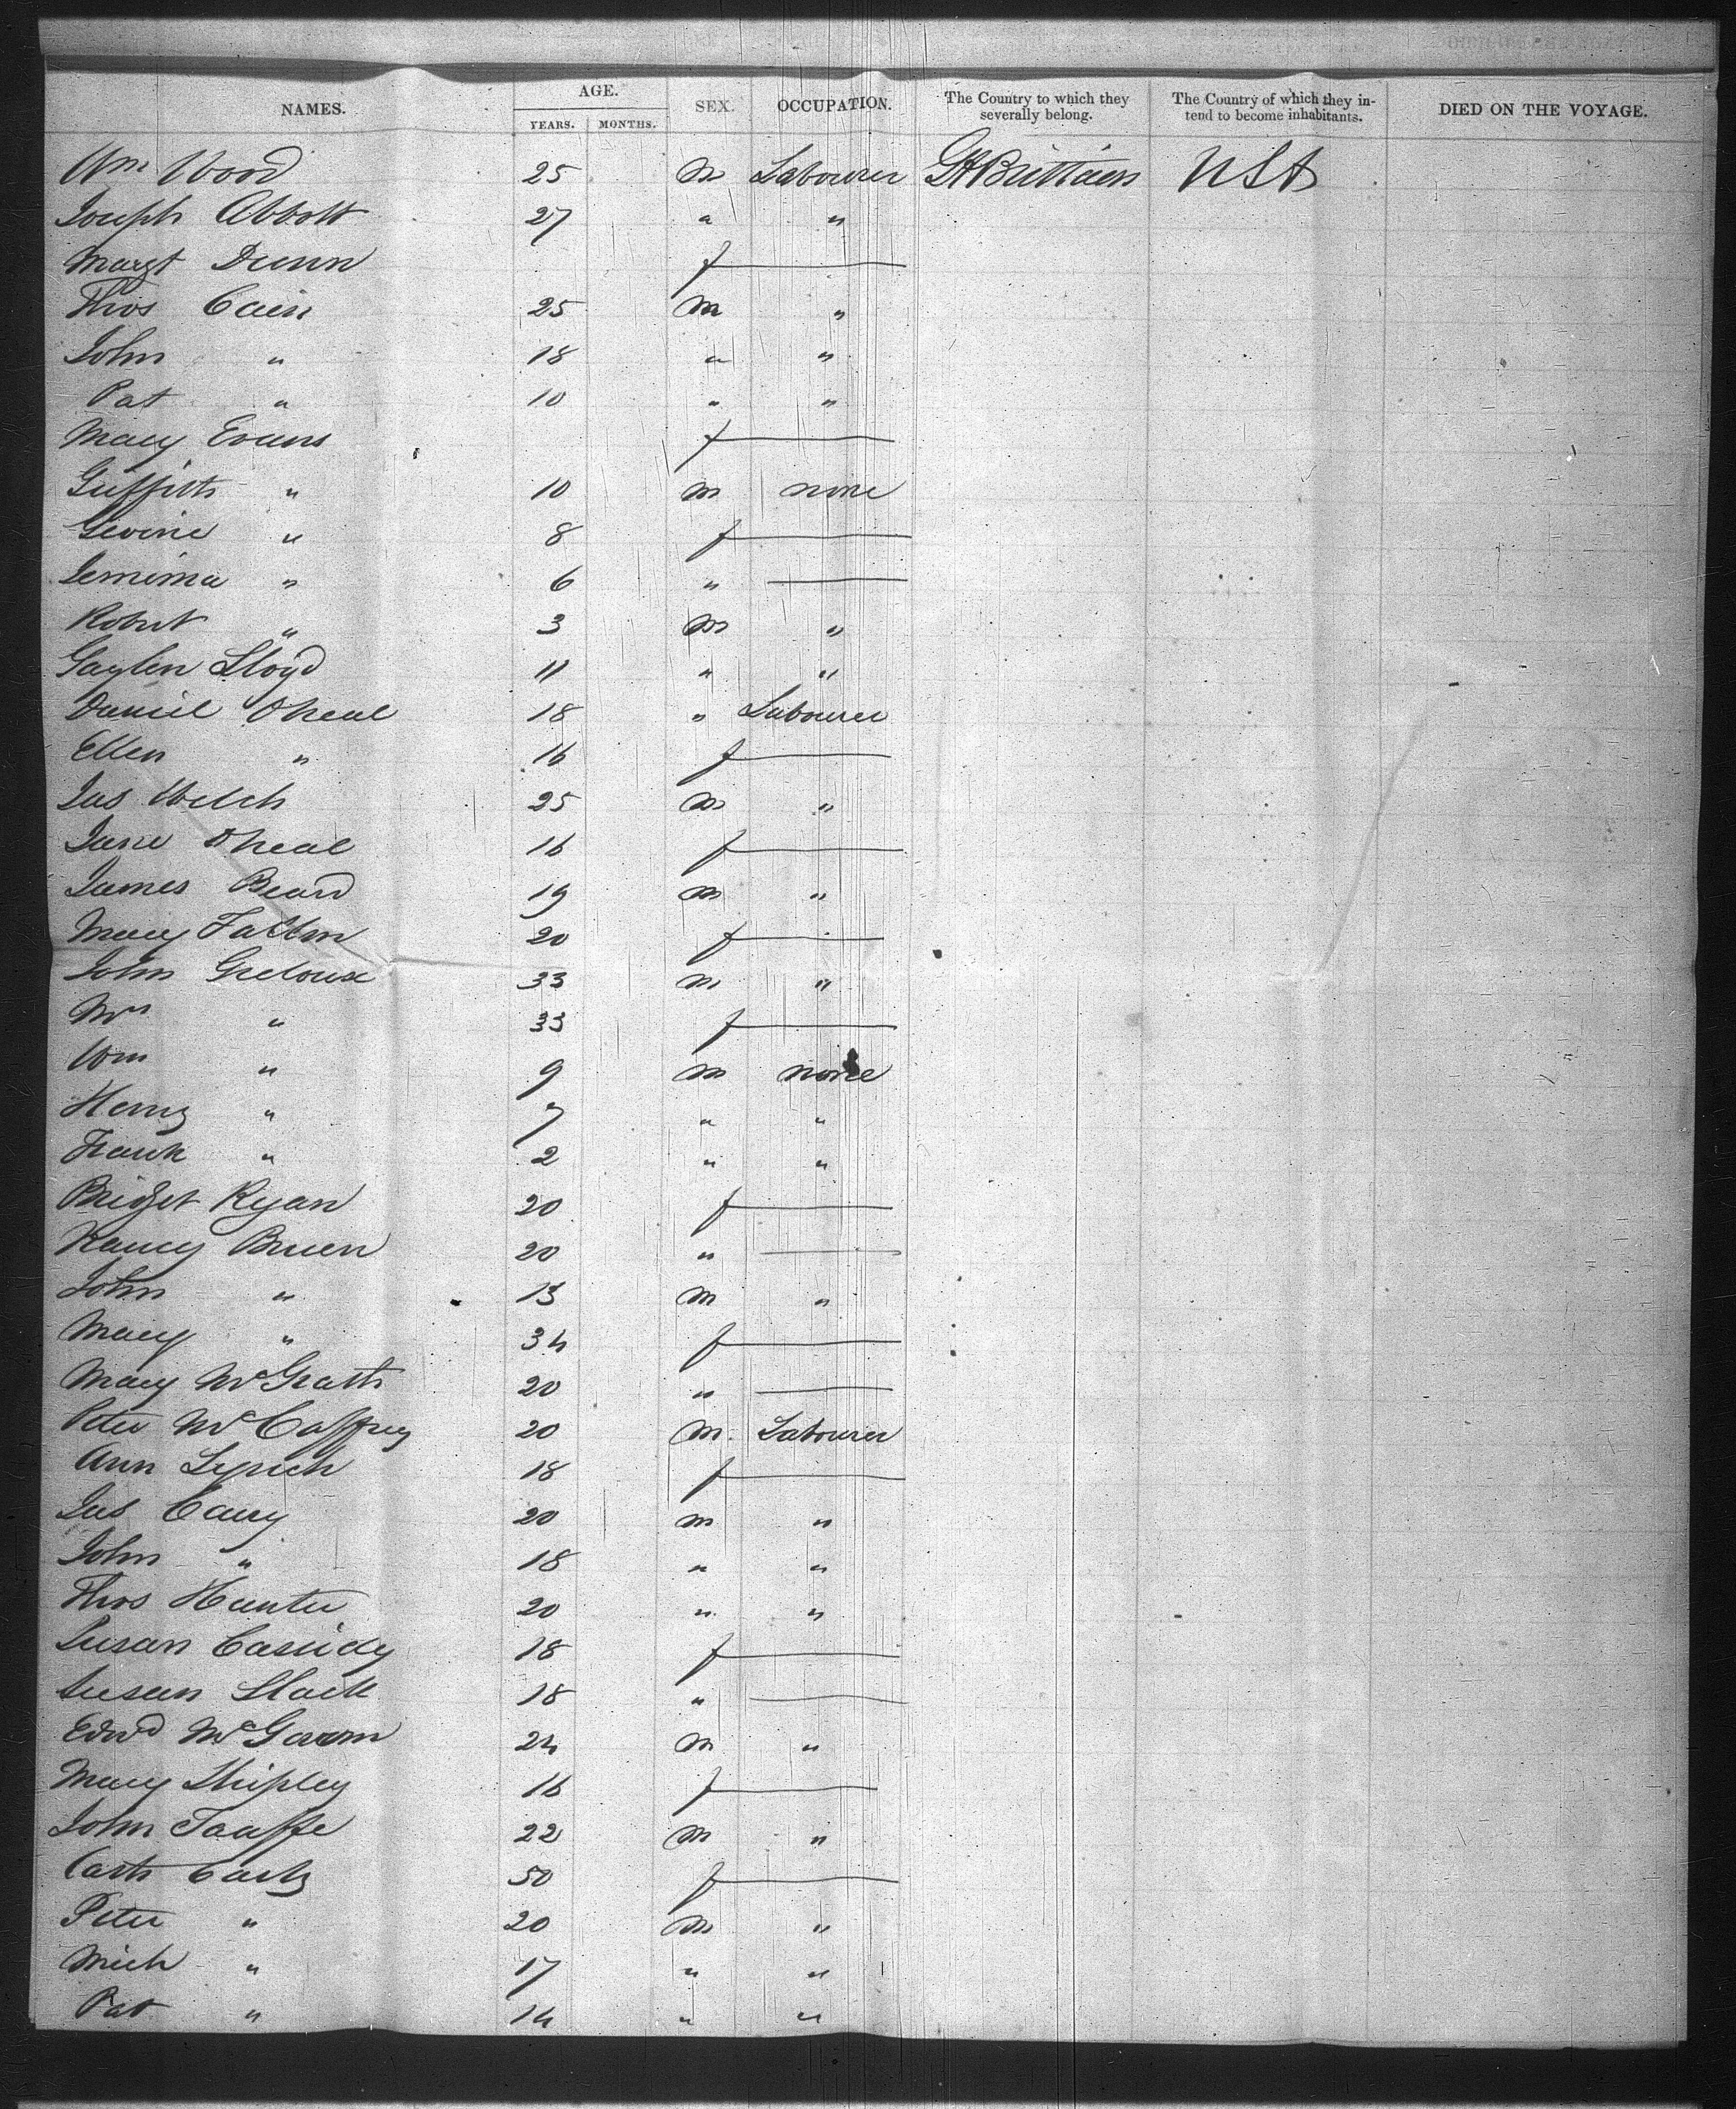 NAMES. AGE. SEX. OCCUPATION. The Country to which they severally belong. The Country of which they intend to become inhabitants. DIED ON THE VOYAGE.
YEARS. MONTHS.
Wm Wood 25 m Labourer Gt Brittain USA
Joseph Abbott 27 " "
Margt Dunn f
Thos Cain 25 m "
John " 18 " "
Pat " 10 " "
Mary Evans f
Griffith " 10 m none
" 8 f
Jemima " 6 "
Robert " 3 m "
Lloyd 11 " "
Daniel Oneal 18 " Labourer
Ellen " 16 f
Jas Welch 25 m "
Jane Oneal 16 f
James Beard 19 m "
Mary Fallon 20 f
John 33 m "
Mrs " 33 f
Wm " 9 m none
Henry " 7 " "
Frank " 2 " "
Bridget Ryan 20 f
Nancy Bruen 20 "
John " 13 m "
Mary " 34 f
Mary McGrath 20 "
Peter McCaffrey 20 m Labourer
Ann Lynch 18 f
Jas Carey 20 m "
John " 18 " "
Thos Hunter 20 " "
Susan Casidy 18 f
Susan Slack 18 "
Edwd McGovern 24 m "
Mary Shipley 16 f
John Taaffe 22 m "
Cath Early 50 f
Peter " 20 m "
Mich " 17 " "
Pat " 14 " "